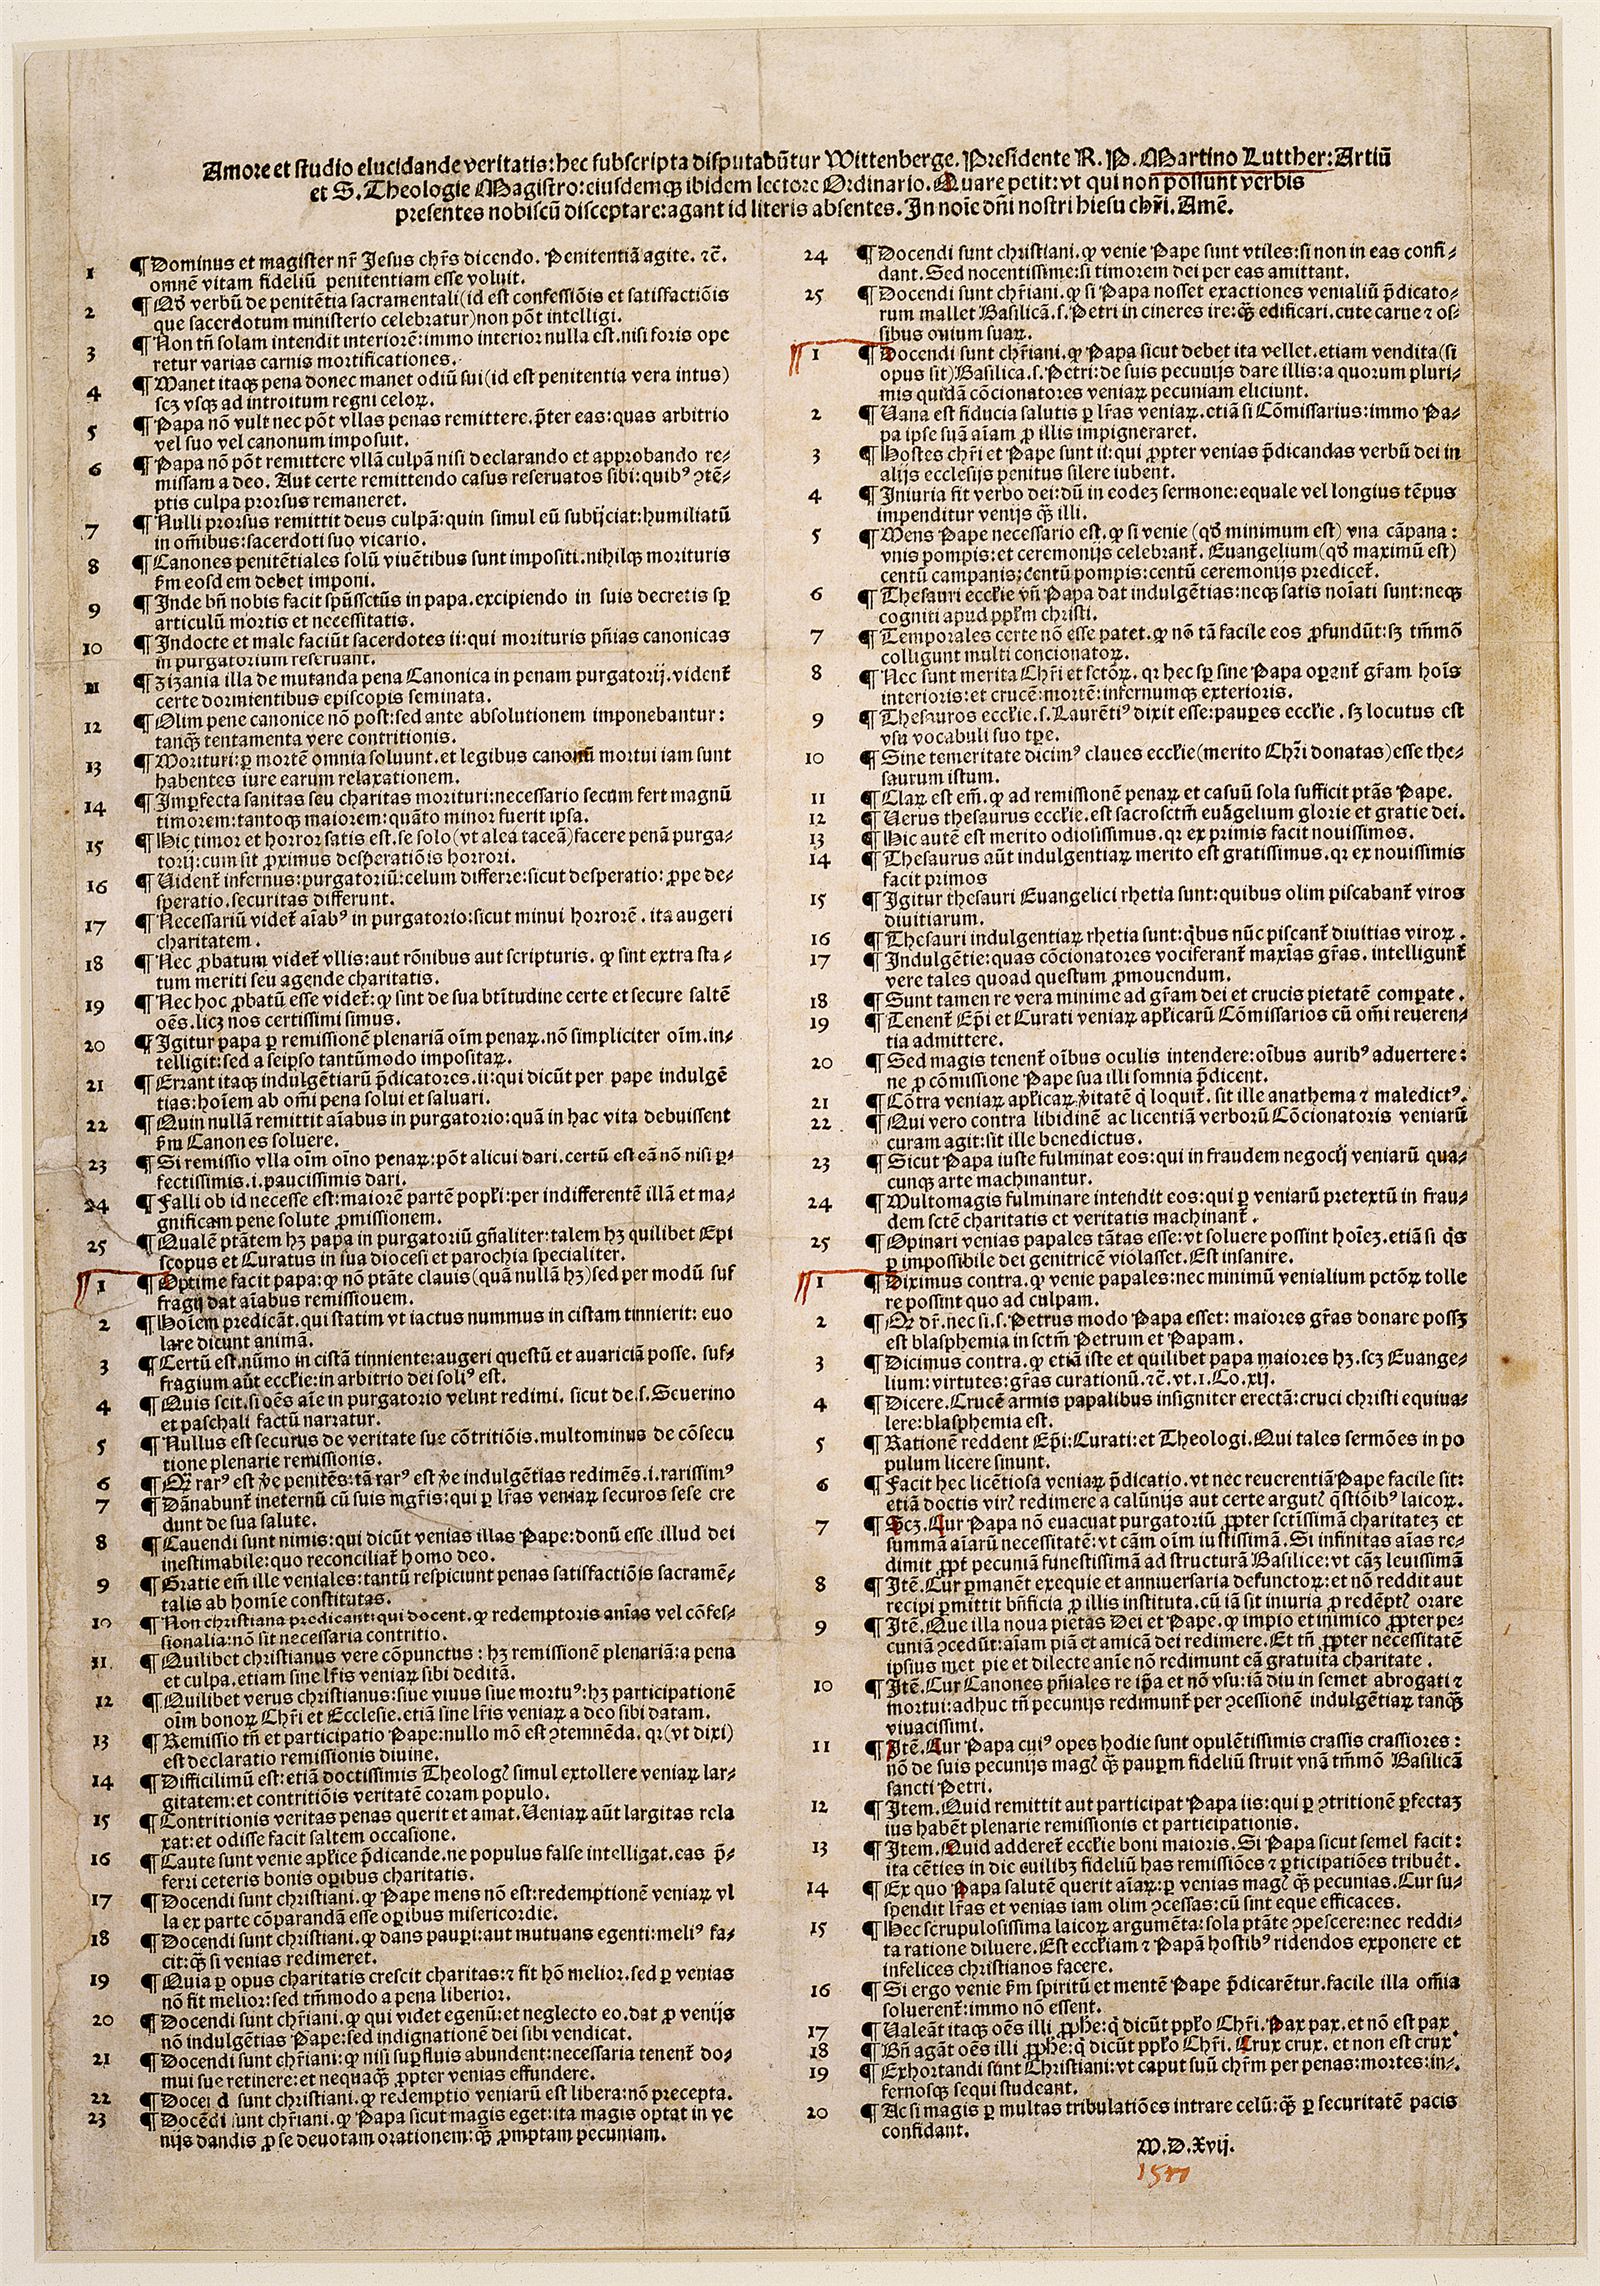 Amore et studio elucidande veritatis: hec subscripta disputabũtur Wittenberge. Presidente R. P. Martino Lutther: Artiũ
et S. Theologie Magistro: eiusdemqꝫ ibidem lectore Ordinario. Quare petit: vt qui non possunt verbis
presentes nobiscũ disceptare: agant id literis absentes. In noĩe dñi nostri hiesu chr̃i. Amẽ.
1 ¶ Dominus et magister nr̃ Jesus chr̃s dicendo. Penitentiã agite. ⁊c̃.
omnẽ vitam fideliũ penitentiam esse voluit.
2 ¶ Qð verbũ de penitẽtia sacramentali (id est confessiõis et satisfactiõis
que sacerdotum ministerio celebratur) non põt intelligi.
3 ¶ Non tñ solam intendit interiorẽ: immo interior nulla est. nisi foris ope
retur varias carnis mortificationes.
4 ¶ Manet itaqꝫ pena donec manet odiũ sui (id est penitentia vera intus)
scꝫ vsqꝫ ad introitum regni celoꝝ.
5 ¶ Papa nõ vult nec põt vllas penas remittere. p̃ter eas: quas arbitrio
vel suo vel canonum imposuit.
6 ¶ Papa nõ põt remittere vllã culpã nisi declarando et approbando re-
missam a deo. Aut certe remittendo casus reseruatos sibi: quibꝰ ɔtẽ-
ptis culpa prorsus remaneret.
7 ¶ Nulli prorsus remittit deus culpã: quin simul eũ subijciat: humiliatũ
in om̃ibus: sacerdoti suo vicario.
8 ¶ Canones penitẽtiales solũ viuẽtibus sunt impositi. nihilqꝫ morituris
ẜm eosd em debet imponi.
9 ¶ Inde bñ nobis facit spũssctũs in papa. excipiendo in suis decretis sꝑ
articulũ mortis et necessitatis.
10 ¶ Indocte et male faciũt sacerdotes ii: qui morituris pñias canonicas
in purgatorium reseruant.
11 ¶ Zizania illa de mutanda pena Canonica in penam purgatorij. vident̃
certe dormientibus episcopis seminata.
12 ¶ Olim pene canonice nõ post: sed ante absolutionem imponebantur:
tanqꝫ̃ tentamenta vere contritionis.
13 ¶ Morituri: ꝑ mortẽ omnia soluunt. et legibus canonũ mortui iam sunt
habentes iure earum relaxationem.
14 ¶ Imꝑfecta sanitas seu charitas morituri: necessario secum fert magnũ
timorem: tantoqꝫ maiorem: quãto minor fuerit ipsa.
15 ¶ Hic timor et horror satis est. se solo (vt alea taceã) facere penã purga-
torij: cum sit ꝓximus desperatiõis horrori.
16 ¶ Vident̃ infernus: purgatoriũ: celum differre: sicut desperatio: ꝓpe de-
speratio. securitas differunt.
17 ¶ Necessariũ videt̃ aĩabꝰ in purgatorio: sicut minui horrorẽ. ita augeri
charitatem.
18 ¶ Nec ꝓbatum videt̃ vllis: aut rõnibus aut scripturis. ꝙ sint extra sta-
tum meriti seu agende charitatis.
19 ¶ Nec hoc ꝓbatũ esse videt̃: ꝙ sint de sua btĩtudine certe et secure saltẽ
oẽs. licꝫ nos certissimi simus.
20 ¶ Igitur papa ꝑ remissionẽ plenariã oĩm penaꝝ. nõ simpliciter oĩm. in-
telligit: sed a seipso tantũmodo impositaꝝ.
21 ¶ Errant itaqꝫ indulgẽtiarũ p̃dicatores. ii: qui dicũt per pape indulgẽ
tias: hoĩem ab om̃i pena solui et saluari.
22 ¶ Quin nullã remittit aĩabus in purgatorio: quã in hac vita debuissent
ẜm Canones soluere.
23 ¶ Si remissio vlla oĩm oĩno penaꝝ: põt alicui dari. certũ est eã nõ nisi ꝑ-
fectissimis. i. paucissimis dari.
24 ¶ Falli ob id necesse est: maiorẽ partẽ popľi: per indifferentẽ illã et ma-
gnificam pene solute ꝓmissionem.
25 ¶ Qualẽ ptãtem hꝫ papa in purgatoriũ gñaliter: talem hꝫ quilibet Epi
scopus et Curatus in sua diocesi et parochia specialiter.
1 ¶ Optime facit papa: ꝙ nõ ptãte clauis (quã nullã hꝫ) sed per modũ suf
fragij dat aĩabus remissiouem.
2 ¶ Hoĩem predicãt. qui statim vt iactus nummus in cistam tinnierit: euo
lare dicunt animã.
3 ¶ Certũ est. nũmo in cistã tinniente: augeri questũ et auariciã posse. suf-
fragium aũt eccľie: in arbitrio dei soliꝰ est.
4 ¶ Quis scit. si oẽs aĩe in purgatorio velint redimi. sicut de. s. Seuerino
et paschali factũ narratur.
5 ¶ Nullus est securus de veritate sue cõtritiõis. multominus de cõsecu
tione plenarie remissionis.
6 ¶ Qꝫ̃ rarꝰ est ꝟe penitẽs: tã rarꝰ est ꝟe indulgẽtias redimẽs. i. rarissimꝰ
7 ¶ Dãnabunt̃ ineternũ cũ suis mgr̃is: qui ꝑ lr̃as veniaꝝ securos sese cre
dunt de sua salute.
8 ¶ Cauendi sunt nimis: qui dicũt venias illas Pape: donũ esse illud dei
inestimabile: quo reconciliat̃ homo deo.
9 ¶ Gratie em̃ ille veniales: tantũ respiciunt penas satisfactiõis sacramẽ-
talis ab homĩe constitutas.
10 ¶ Non christiana predicant: qui docent. ꝙ redemptoris anĩas vel cõfes-
sionalia: nõ sit necessaria contritio.
11 ¶ Quilibet christianus vere cõpunctus: hꝫ remissionẽ plenariã: a pena
et culpa. etiam sine lr̃is veniaꝝ sibi debitã.
12 ¶ Quilibet verus christianus: siue viuus siue mortuꝰ: hꝫ participationẽ
oĩm bonoꝝ Chr̃i et Ecclesie. etiã sine lr̃is veniaꝝ a deo sibi datam.
13 ¶ Remissio tñ et participatio Pape: nullo mõ est ɔtemnẽda. qꝛ (vt dixi)
est declaratio remissionis diuine.
14 ¶ Difficilimũ est: etiã doctissimis Theologꝭ simul extollere veniaꝝ lar-
gitatem: et contritiõis veritatẽ coram populo.
15 ¶ Contritionis veritas penas querit et amat. Veniaꝝ aũt largitas rela
xat: et odisse facit saltem occasione.
16 ¶ Caute sunt venie apľice p̃dicande. ne populus false intelligat. eas p̃-
ferri ceteris bonis oꝑibus charitatis.
17 ¶ Docendi sunt christiani. ꝙ Pape mens nõ est: redemptionẽ veniaꝝ vl
la ex parte cõparandã esse oꝑibus misericordie.
18 ¶ Docendi sunt christiani. ꝙ dans pauꝑi: aut mutuans egenti: meliꝰ fa-
cit: qꝫ̃ si venias redimeret.
19 ¶ Quia ꝑ opus charitatis crescit charitas: ⁊ fit hõ melior. sed ꝑ venias
nõ fit melior: sed tm̃modo a pena liberior.
20 ¶ Docendi sunt chr̃iani. ꝙ qui videt egenũ: et neglecto eo. dat ꝓ venijs
nõ indulgẽtias Pape: sed indignationẽ dei sibi vendicat.
21 ¶ Docendi sunt chr̃iani: ꝙ nisi suꝑfluis abundent: necessaria tenent̃ do-
mui sue retinere: et nequaqꝫ̃ ꝓpter venias effundere.
22 ¶ Docei d sunt christiani. ꝙ redemptio veniarũ est libera: nõ precepta.
23 ¶ Docẽdi sunt chr̃iani. ꝙ Papa sicut magis eget: ita magis optat in ve
nijs dandis ꝓ se deuotam orationem: qꝫ̃ ꝓmptam pecuniam.
24 ¶ Docendi sunt christiani. ꝙ venie Pape sunt vtiles: si non in eas confi-
dant. Sed nocentissime: si timorem dei per eas amittant.
25 ¶ Docendi sunt chr̃iani. ꝙ si Papa nosset exactiones venialiũ p̃dicato-
rum mallet Basilicã. s. Petri in cineres ire: qꝫ̃ edificari. cute carne ⁊ os-
sibus ouium suaꝝ.
1 ¶ Docendi sunt chr̃iani. ꝙ Papa sicut debet ita vellet. etiam vendita (si
opus sit) Basilica. s. Petri: de suis pecunijs dare illis: a quorum pluri-
mis quidã cõcionatores veniaꝝ pecuniam eliciunt.
2 ¶ Vana est fiducia salutis ꝑ lr̃as veniaꝝ. etiã si Cõmissarius: immo Pa-
pa ipse suã aĩam ꝓ illis impigneraret.
3 ¶ Hostes chr̃i et Pape sunt ii: qui ꝓpter venias p̃dicandas verbũ dei in
alijs ecclesijs penitus silere iubent.
4 ¶ Iniuria fit verbo dei: dũ in eodeꝫ sermone: equale vel longius tẽpus
impenditur venijs qꝫ̃ illi.
5 ¶ Mens Pape necessario est. ꝙ si venie (qð minimum est) vna cãpana:
vnis pompis: et ceremonijs celebrant̃. Euangelium (qð maximũ est)
centũ campanis: centũ pompis: centũ ceremonijs predicet̃.
6 ¶ Thesauri eccľie vñ Papa dat indulgẽtias: neqꝫ satis noĩati sunt: neqꝫ
cogniti apud ppľm christi.
7 ¶ Temporales certe nõ esse patet. ꝙ nõ tã facile eos ꝓfundũt: sꝫ tm̃mõ
colligunt multi concionatoꝝ.
8 ¶ Nec sunt merita Chr̃i et sctõꝝ. qꝛ hec sꝑ sine Papa oꝑant̃ gr̃am hoĩs
interioris: et crucẽ: mortẽ: infernumqꝫ exterioris.
9 ¶ Thesauros eccľie. s. Laurẽtiꝰ dixit esse: pauꝑes eccľie. sꝫ locutus est
vsu vocabuli suo tꝑe.
10 ¶ Sine temeritate dicimꝰ claues eccľie (merito Chr̃i donatas) esse the-
saurum istum.
11 ¶ Claꝝ est em̃. ꝙ ad remissionẽ penaꝝ et casuũ sola sufficit ptãs Pape.
12 ¶ Verus thesaurus eccľie. est sacrosctm̃ euãgelium glorie et gratie dei.
13 ¶ Hic autẽ est merito odiosissimus. qꝛ ex primis facit nouissimos.
14 ¶ Thesaurus aũt indulgentiaꝝ merito est gratissimus. qꝛ ex nouissimis
facit primos
15 ¶ Igitur thesauri Euangelici rhetia sunt: quibus olim piscabant̃ viros
diuitiarum.
16 ¶ Thesauri indulgentiaꝝ rhetia sunt: qͥbus nũc piscant̃ diuitias viroꝝ.
17 ¶ Indulgẽtie: quas cõcionatores vociferant̃ maxĩas gr̃as. intelligunt̃
vere tales quoad questum ꝓmouendum.
18 ¶ Sunt tamen re vera minime ad gr̃am dei et crucis pietatẽ comꝑate.
19 ¶ Tenent̃ Epĩ et Curati veniaꝝ apľicarũ Cõmissarios cũ om̃i reueren-
tia admittere.
20 ¶ Sed magis tenent̃ oĩbus oculis intendere: oĩbus auribꝰ aduertere:
ne ꝓ cõmissione Pape sua illi somnia p̃dicent.
21 ¶ Cõtra veniaꝝ apľicaꝝ ꝟitatẽ q̃ loquit̃. sit ille anathema ⁊ maledictꝰ.
22 ¶ Qui vero contra libidinẽ ac licentiã verborũ Cõcionatoris veniarũ
curam agit: sit ille benedictus.
23 ¶ Sicut Papa iuste fulminat eos: qui in fraudem negocij veniarũ qua-
cunqꝫ arte machinantur.
24 ¶ Multomagis fulminare intendit eos: qui ꝑ veniarũ pretextũ in frau-
dem sctẽ charitatis et veritatis machinant̃.
25 ¶ Opinari venias papales tãtas esse: vt soluere possint hoĩeꝫ. etiã si qͥs
ꝑ impossibile dei genitricẽ violasset. Est insanire.
1 ¶ Diximus contra. ꝙ venie papales: nec minimũ venialium pctõꝝ tolle
re possint quo ad culpam.
2 ¶ Qꝙ dr̃. nec si. s. Petrus modo Papa esset: maiores gr̃as donare possꝫ
est blasphemia in sctm̃ Petrum et Papam.
3 ¶ Dicimus contra. ꝙ etiã iste et quilibet papa maiores hꝫ. scꝫ Euange-
lium: virtutes: gr̃as curationũ. ⁊c̃. vt. 1. Co. xij.
4 ¶ Dicere. Crucẽ armis papalibus insigniter erectã: cruci christi equiua-
lere: blasphemia est.
5 ¶ Rationẽ reddent Epĩ: Curati: et Theologi. Qui tales sermões in po
pulum licere sinunt.
6 ¶ Facit hec licẽtiosa veniaꝝ p̃dicatio. vt nec reuerentiã Pape facile sit:
etiã doctis virꝭ redimere a calũnijs aut certe argutꝭ q̃stiõibꝰ laicoꝝ.
7 ¶ Scꝫ. Cur Papa nõ euacuat purgatoriũ ꝓpter sctĩssimã charitateꝫ et
summã aĩarũ necessitatẽ: vt cãm oĩm iustissimã. Si infinitas aĩas re-
dimit ꝓpt̃ pecuniã funestissimã ad structurã Basilice: vt cãꝫ leuissimã
8 ¶ Itẽ. Cur ꝑmanẽt exequie et anniuersaria defunctoꝝ: et nõ reddit aut
recipi ꝑmittit bñficia ꝓ illis instituta. cũ iã sit iniuria ꝓ redẽptꝭ orare
9 ¶ Itẽ. Que illa noua pietas Dei et Pape. ꝙ impio et inimico ꝓpter pe-
cuniã ɔcedũt: aĩam piã et amicã dei redimere. Et tñ ꝓpter necessitatẽ
ipsius met pie et dilecte anĩe nõ redimunt eã gratuita charitate.
10 ¶ Itẽ. Cur Canones pñiales re ip̃a et nõ vsu: iã diu in semet abrogati ⁊
mortui: adhuc tñ pecunijs redimunt̃ per ɔcessionẽ indulgẽtiaꝝ tanqꝫ̃
viuacissimi.
11 ¶ Itẽ. Cur Papa cuiꝰ opes hodie sunt opulẽtissimis crassis crassiores:
nõ de suis pecunijs magꝭ qꝫ̃ pauꝑm fideliũ struit vnã tm̃mõ Basilicã
sancti Petri.
12 ¶ Item. Quid remittit aut participat Papa iis: qui ꝑ ɔtritionẽ ꝑfectaꝫ
ius habẽt plenarie remissionis et participationis.
13 ¶ Item. Quid adderet̃ eccľie boni maioris. Si Papa sicut semel facit:
ita cẽties in die cuilibꝫ fideliũ has remissiões ⁊ ꝑticipatiões tribuẽt.
14 ¶ Ex quo Papa salutẽ querit aĩaꝝ: ꝑ venias magꝭ qꝫ̃ pecunias. Cur su-
spendit lr̃as et venias iam olim ɔcessas: cũ sint eque efficaces.
15 ¶ Hec scrupulosissima laicoꝝ argumẽta: sola ptãte ɔpescere: nec reddi-
ta ratione diluere. Est eccľiam ⁊ Papã hostibꝰ ridendos exponere et
infelices christianos facere.
16 ¶ Si ergo venie ẜm spiritũ et mentẽ Pape p̃dicarẽtur. facile illa om̃ia
soluerent̃: immo nõ essent.
17 ¶ Valeãt itaqꝫ oẽs illi ꝓphe: q̃ dicũt ppľo Chr̃i. Pax pax. et nõ est pax.
18 ¶ Bñ agãt oẽs illi ꝓphe: q̃ dicũt ppľo Chr̃i. Crux crux. et non est crux
19 ¶ Exhortandi sunt Christiani: vt caput suũ chr̃m per penas: mortes: in-
fernosqꝫ sequi studeant.
20 ¶ Ac si magis ꝑ multas tribulatiões intrare celũ: qꝫ̃ ꝑ securitatẽ pacis
confidant.
M. D. Xvij.
1517